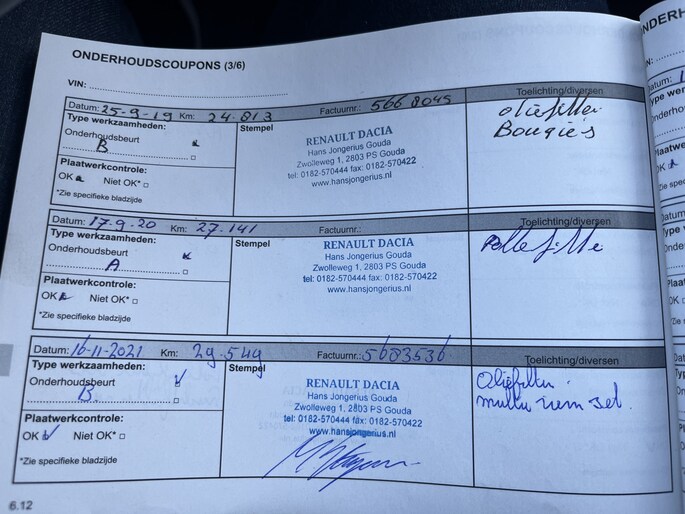 ONDERHOUDSCOUPONS (3/6)
VIN:
Datum: 25-9-19 Km: 24.813 Factuurnr.: 5668045 Toelichting/diversen
Type werkzaamheden:
Onderhoudsbeurt
B
Plaatwerkcontrole:
OK Niet OK*
*Zie specifieke bladzijde
Stempel
RENAULT DACIA
Hans Jongerius Gouda
Zwolleweg 1, 2803 PS Gouda
tel: 0182-570444 fax: 0182-570422
www.hansjongerius.nl
oliefilter
Bougies
Datum: 17-9-20 Km: 27.141 Factuurnr.: Toelichting/diversen
Type werkzaamheden:
Onderhoudsbeurt
A
Plaatwerkcontrole:
OK Niet OK*
*Zie specifieke bladzijde
Stempel
RENAULT DACIA
Hans Jongerius Gouda
Zwolleweg 1, 2803 PS Gouda
tel: 0182-570444 fax: 0182-570422
www.hansjongerius.nl
Datum: 16-11-2021 Km: 29.549 Factuurnr.: 5683536 Toelichting/diversen
Type werkzaamheden:
Onderhoudsbeurt
B.
Plaatwerkcontrole:
OK Niet OK*
*Zie specifieke bladzijde
Stempel
RENAULT DACIA
Hans Jongerius Gouda
Zwolleweg 1, 2803 PS Gouda
tel: 0182-570444 fax: 0182-570422
www.hansjongerius.nl
Oliefilter.
multi riem set.
6.12